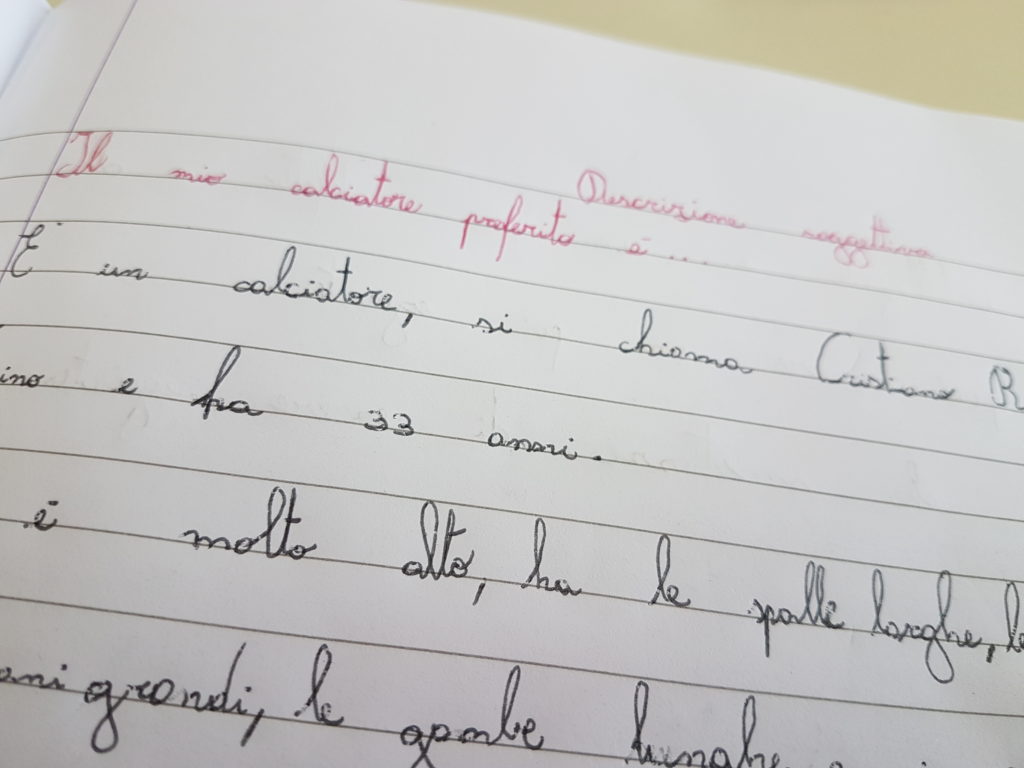 Descrizione soggettiva
Il mio calciatore preferito è ...
È un calciatore, si chiama Cristiano R
ino e ha 33 anni.
è molto alto, ha le spalle larghe, le
ani grandi, le gambe lunghe